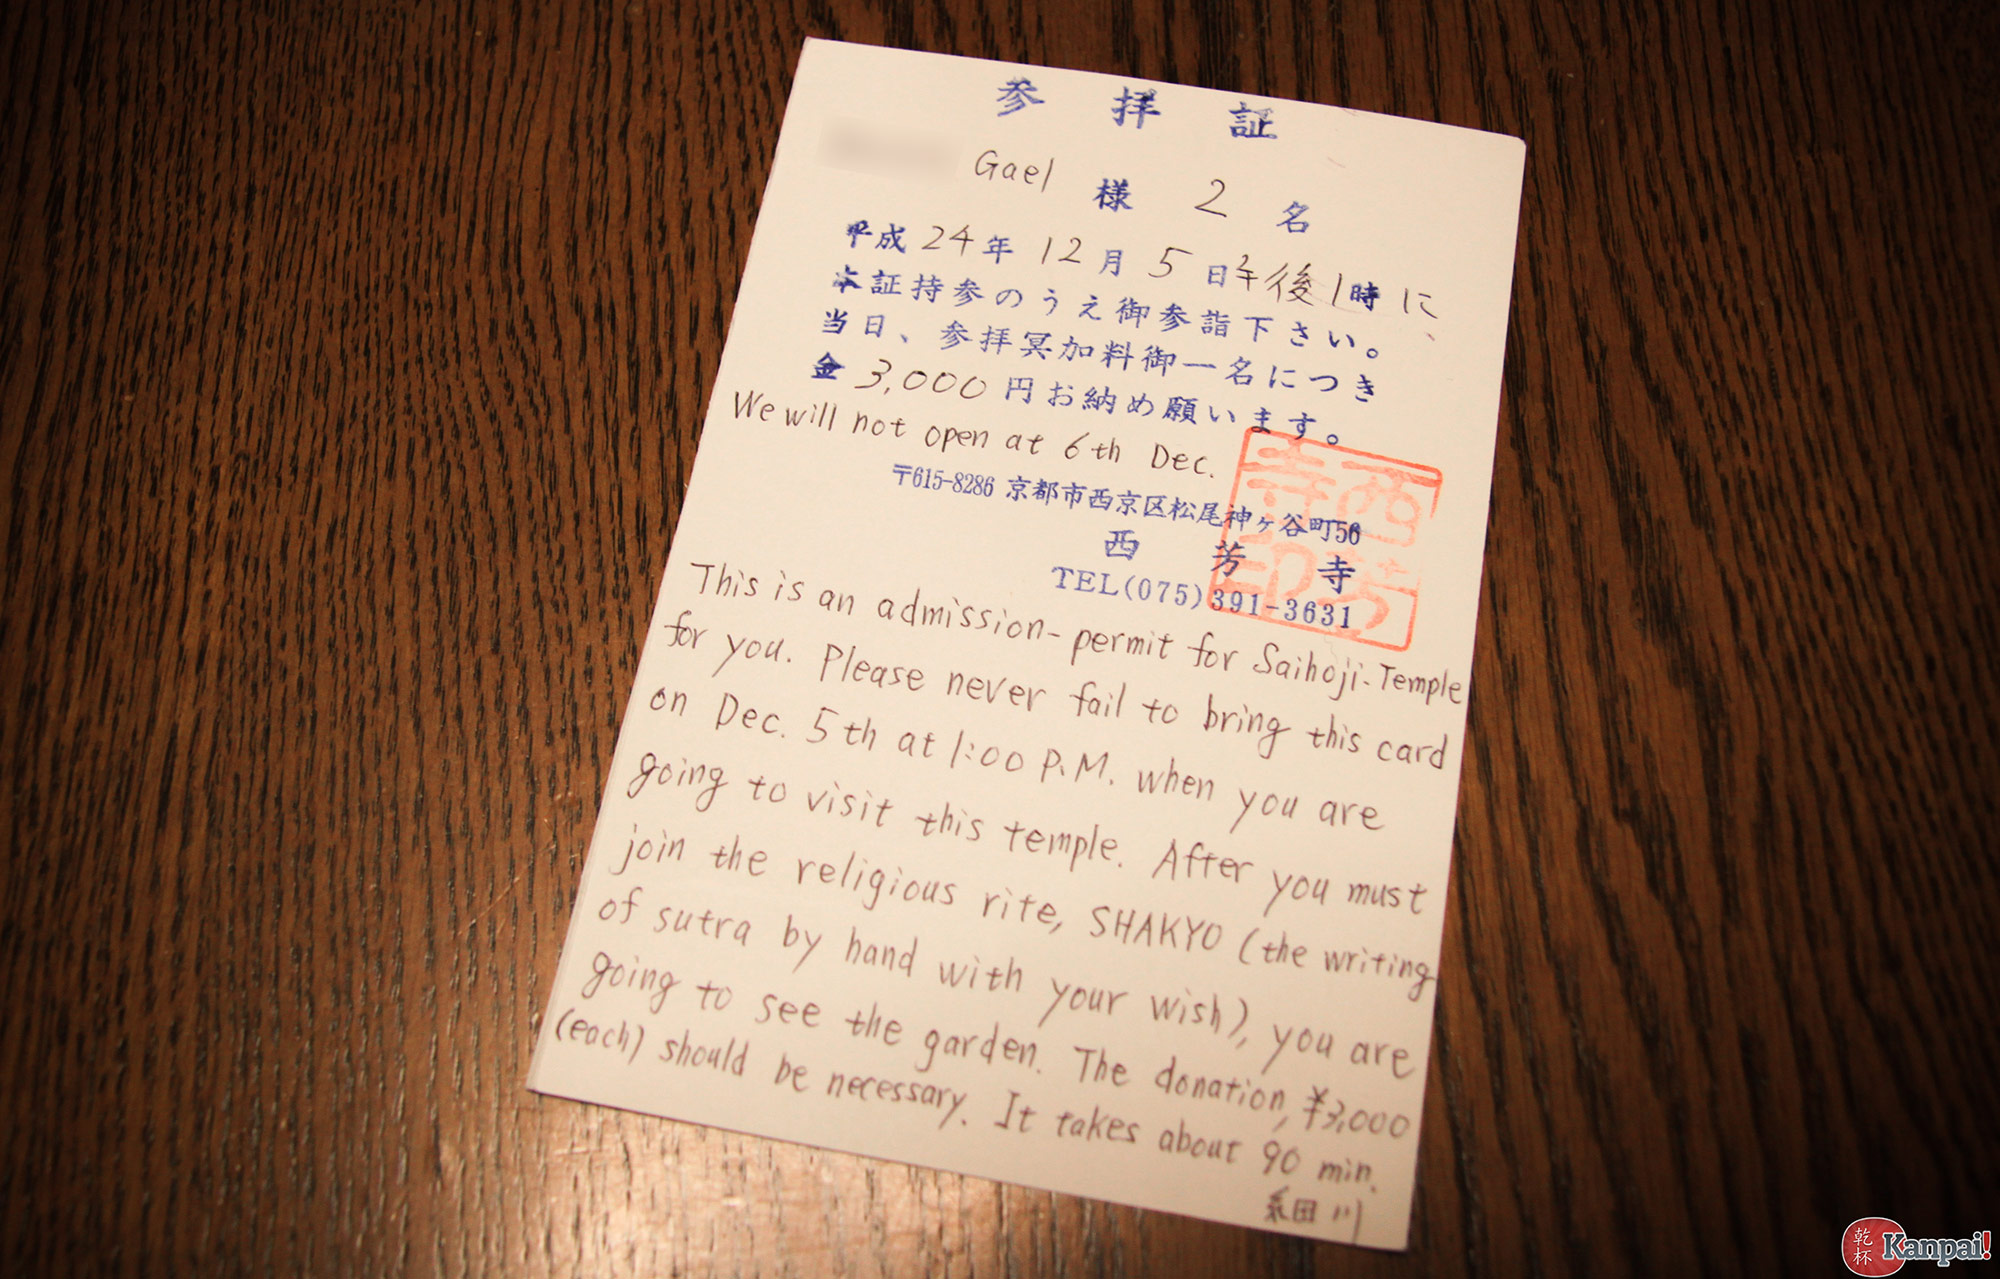 参拝証
Gael 様 2 名
平成 24 年 12 月 5 日 午後 1 時 に、
本証持参のうえ御参詣下さい。
当日、参拝冥加料御一名につき
金 3,000 円お納め願います。
We will not open at 6th Dec.
〒615-8286 京都市西京区松尾神ヶ谷町56
西芳寺
TEL(075)391-3631
西芳寺印
This is an admission-permit for Saihoji-Temple
for you. Please never fail to bring this card
on Dec. 5th at 1:00 P.M. when you are
going to visit this temple. After you must
join the religious rite, SHAKYO (the writing
of sutra by hand with your wish), you are
going to see the garden. The donation, ¥3,000
(each) should be necessary. It takes about 90 min.
細川
乾杯 Kanpai!